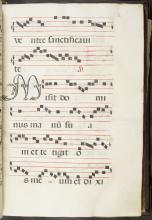 ve ntre sanctificavi
te
Misit do mi
nus manu su a
m et te tigit o
s me um et di xi